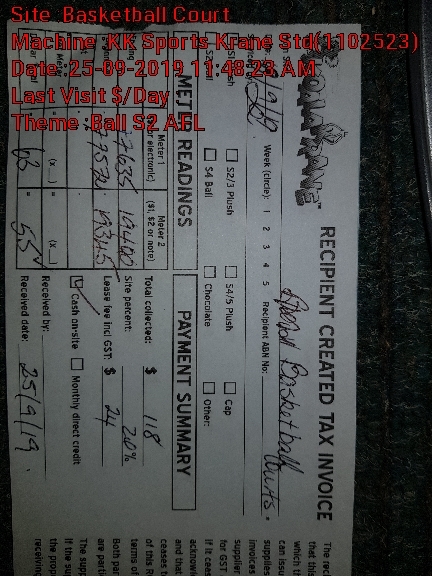 Site Basketball Court
Machine KK Sports Krane Std(1102523)
Date :25-09-2019 11:48:23 AM
Last Visit $/Day
Theme :Ball S2 AFL
RECIPIENT CREATED TAX INVOICE
Basketball Courts.
Week (circle): 1 2 3 4 5 Recipient ABN No:
S2/3 Plush S4/5 Plush Cap
S4 Ball Chocolate Other:
METER READINGS PAYMENT SUMMARY
Meter 1 Meter 2
or electronic) ($1, $2 or note)
7635 19400
7572 19345
(x ) (x )
63 55
Total collected: $ 118
Site percent: 20%
Lease fee incl GST: $ 24
Cash on-site Monthly direct credit
Received by:
Received date: 25/9/19.
The reci
that this
which th
can issu
supplies
invoices
supplier
for GST
if it ceas
acknowl
and that
ceases t
of this R
terms of
Both par
are parti
The supp
if the su
the prop
receiving